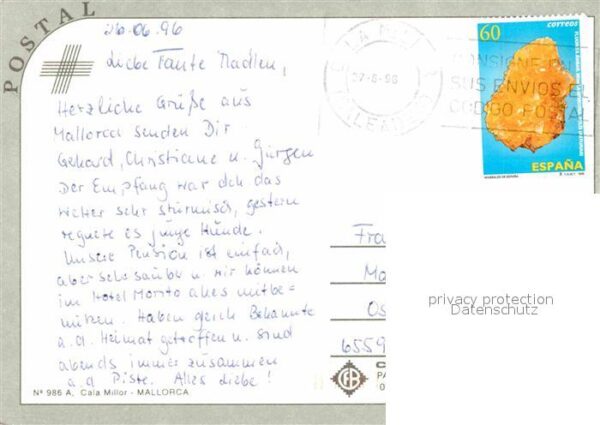 POSTAL
26.06.96
Liebe Tante Madlen,
Herzliche Grüße aus
Mallorca senden Dir
Gerhard, Christiane u. Jürgen
Der Empfang war dch das
Wetter sehr stürmisch, gestern
regnete es junge Hunde.
Unsere Pension ist einfach,
aber sehr sauber u. wir können
im Hotel Morito alles mitbe=
nützen. Haben gleich Bekannte
a.d. Heimat getroffen u. sind
abends immer zusammen
a.d. Piste. Alles Liebe!
Nº 986 A, Cala Millor - MALLORCA
60
correos
ESPAÑA
MINERALES DE ESPAÑA
27-6-96
BALEARES
CONSIGNE EN
SUS ENVIOS EL
CODIGO POSTAL
Fra
Ma
Os
6559
privacy protection
Datenschutz